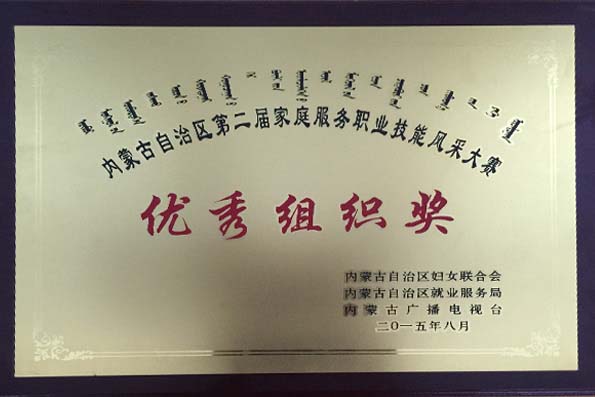 内蒙古自治区第二届家庭服务职业技能风采大赛
优秀组织奖
内蒙古自治区妇女联合会
内蒙古自治区就业服务局
内蒙古广播电视台
二〇一五年八月